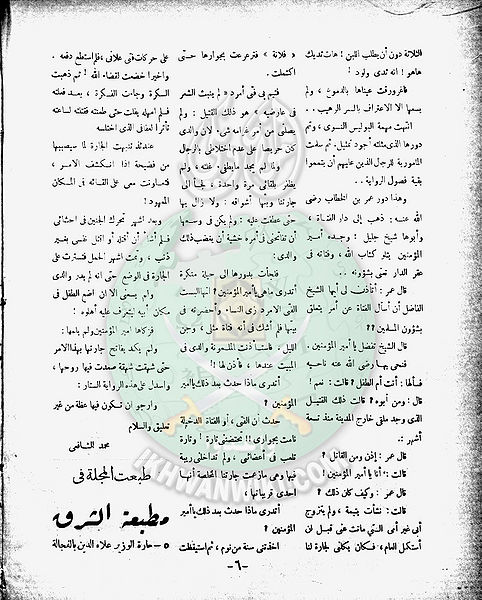 الثلاثة دون أن يطلب اللبن ! هات ثديك
هاهو ! انه ثدى ولود !
فاغرورقت عيناها بالدموع ، ولم
يسعها الا الاعتراف بالسر الرهيب ..
انتهت مهمة البوليس النسوى ، وتم
دورها الذى مثلته أجود تمثيل ، ثم سلمت
المأمورية للرجال الذين عليهم أن يتمموا
بقية فصول الرواية ..
وهذا دور عمر بن الخطاب رضى
الله عنه : ذهب إلى دار الفتاة ،
وأبوها شيخ جليل : وجده أمير
المؤمنين يتلو كتاب الله ، وفتاته فى
عقر الدار تعنى بشؤونه ..
قال عمر : أتأذن لى أيها الشيخ
الفاضل أن أسأل الفتاة عن أمر يتعلق
بشؤون المسلمين ??
قال الشيخ تفضل يا أمير المؤمنين .
فنحى بها رضى الله عنه ناحيه
فسألها : أنت أم الطفل ? قالت : نعم !
قال : ومن أبوه ? قالت : ذلك القتيل
الذى وجد ملقى خارج المدينة منذ تسعة
أشهر :.
قال عمر : إذن ومن القاتل ?
قالت : أنا يا أمير المؤمنين !
قال عمر : وكيف كان ذلك ?
قالت : نشأت يتيمة ، ولم يتزوج
أبى غير أمى التى ماتت عنى قبل أن
أستكمل العام ، فكان يكلنى لجارة لنا
« فلانة » فترعرعت بجوارها حتى
اكتملت .
فتيم بى فتى أمرد « لم ينبت الشعر
فى عارضيه » هو ذلك القتيل : ولم
يصلنى من أمر غرامه شىء لان والدى
كان حريصا على عدم اختلاطى بالرجال
ولما لم يجد مايطفىء غلته ، ولم
يظفر بلقائى مرة واحدة ، لجأ الى
جارتنا وبثها أشواقه : ولا زال بها
حتى عطفت عليه : ولم يكن فى وسعها
أن تفاتحنى فى أمره خشية أن يغضب ذلك
والدى :
فلجأت بدورها الى حيلة منكرة
أتدرى ماهى يا أمير المؤمنين ? انها ألبست
الفتى الامرد زى النساء وأحضرته فى
بيتها فلم أشك فى أنه فتاة مثلى ، وجن
الليل . فاستأذنت الملعونة والدى فى
المبيت عندها ، فأذن لها !!
أتدرى ماذا حدث بعد ذلك يا أمير
المؤمنين ?
حدث أن الفتى ، أو الفتاة الدخيلة
نامت بجوارى !! تحتضنى تارة ! وتارة
تلعب فى أعضائى ، ولم تداخلنى ريبة
فيها وهى بازعمت جارتنا المخلصة أنها
احدى قريباتها ،
أتدرى ماذا حدث بعد ذلك يا أمير
المؤمنين ?
اخذتنى سنة من نوم ، ثم استيقظت
على حركات فتى علانى ، فلم استطع دفعه .
واخيرا خضعت لقضاء الله ! ثم ذهبت
السكرة وجاءت الفكرة ، بعد فعلته
فلم امهله بغلت حتى طعنته فقتلته لساعته
ثأرا لعفافى الذى اختلسه
عندئذ تنبهت الجارة لما سيصيبها
من فضيحة اذا انكشف الامر ،
فتعاونت معى على القائه فى المكان
المعهود !
وبعد اشهر تحرك الجنين فى احشائى
فلم أشأ أن أقتله أو اقتل نفسى بغير
ذنب ، وتمت اشهر الحمل فتسترت على
الجارة فى الوضع حتى انه لم يدر والدى
ولم يسعنى الا ان اضع الطفل فى
مكان أبيه ليتعرف عليه أهلوه !
فزكاها امير المؤمنين ولم يلمها :
ولم يكد يفاتح جارتها بهذا الامر
حتى شهقت شهقة صعدت فيها روحها ،
واسدل على هذه الرواية الستار :
وارجو ان تكون فيها عظة من غير
تعليق والسلام
محمد الشافعى
طبعت المجلة فى
مطبعة الشرق
٥ – حارة الوزير علاء الدين بالفجالة
– ٦ –
IKHWANWIKI.COM